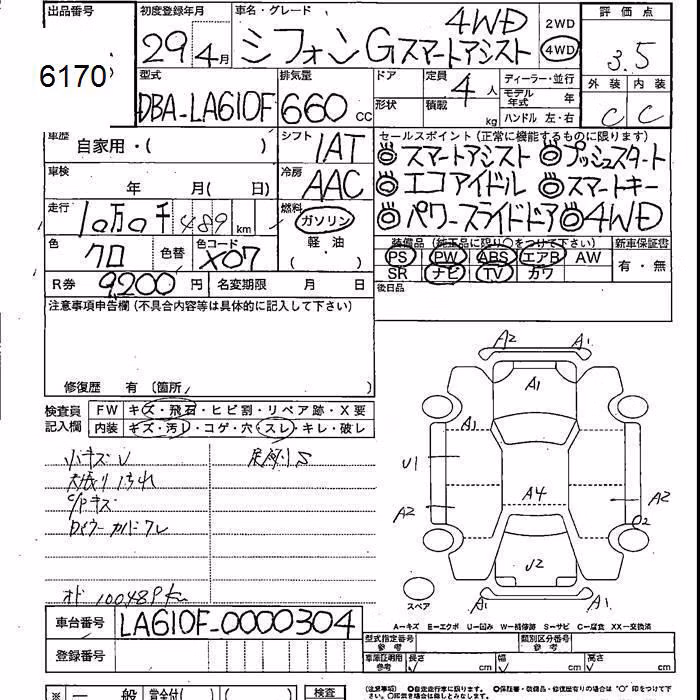 出品番号 初度登録年月 車名・グレード 評価点
6170 29年4月 シフォン Gスマートアシスト 4WD 2WD 4WD 3.5
型式 排気量 ドア 定員 ディーラー・並行 外装 内装
DBA-LA610F 660cc 4人 モデル年式 年 C C
形状 積載 kg ハンドル 左・右
車歴 自家用・( ) シフト 1AT セールスポイント(正常に機能するものに限ります)
◎スマートアシスト ◎プッシュスタート
車検 年 月( 日) 冷房 AAC
◎エコアイドル ◎スマートキー
走行 10万0千489km 燃料 ガソリン 軽油 ( )
◎パワースライドドア ◎4WD
色 クロ 色替 色コード X07
装備品(純正品に限り○をつけて下さい) 新車保証書
PS PW ABS エアB AW 有・無
SR ナビ TV カワ
R券 9200円 名変期限 月 日 後日品
注意事項申告欄(不具合内容等は具体的に記入して下さい)
修復歴 有 (箇所 )
検査員記入欄 FW キズ・飛石・ヒビ割・リペア跡・X要
内装 キズ・汚レ・コゲ・穴・スレ・キレ・破レ
小キズU
天張り汚れ
C/Pキズ
オド 100489km
A2 A1
A1
A1
U1
A4
A2 A2
U2
A1 A1
スペア
A=キズ E=エクボ U=凹み W=補修跡 S=サビ C=腐食 XX=交換済
車台番号 LA610F-0000304
型式指定番号 参考 類別区分番号 参考
登録番号
車庫証明用参考 長さ cm 幅 cm 高さ cm
※ 一般 賞金付( ) ( ) 検査
(注意事項)